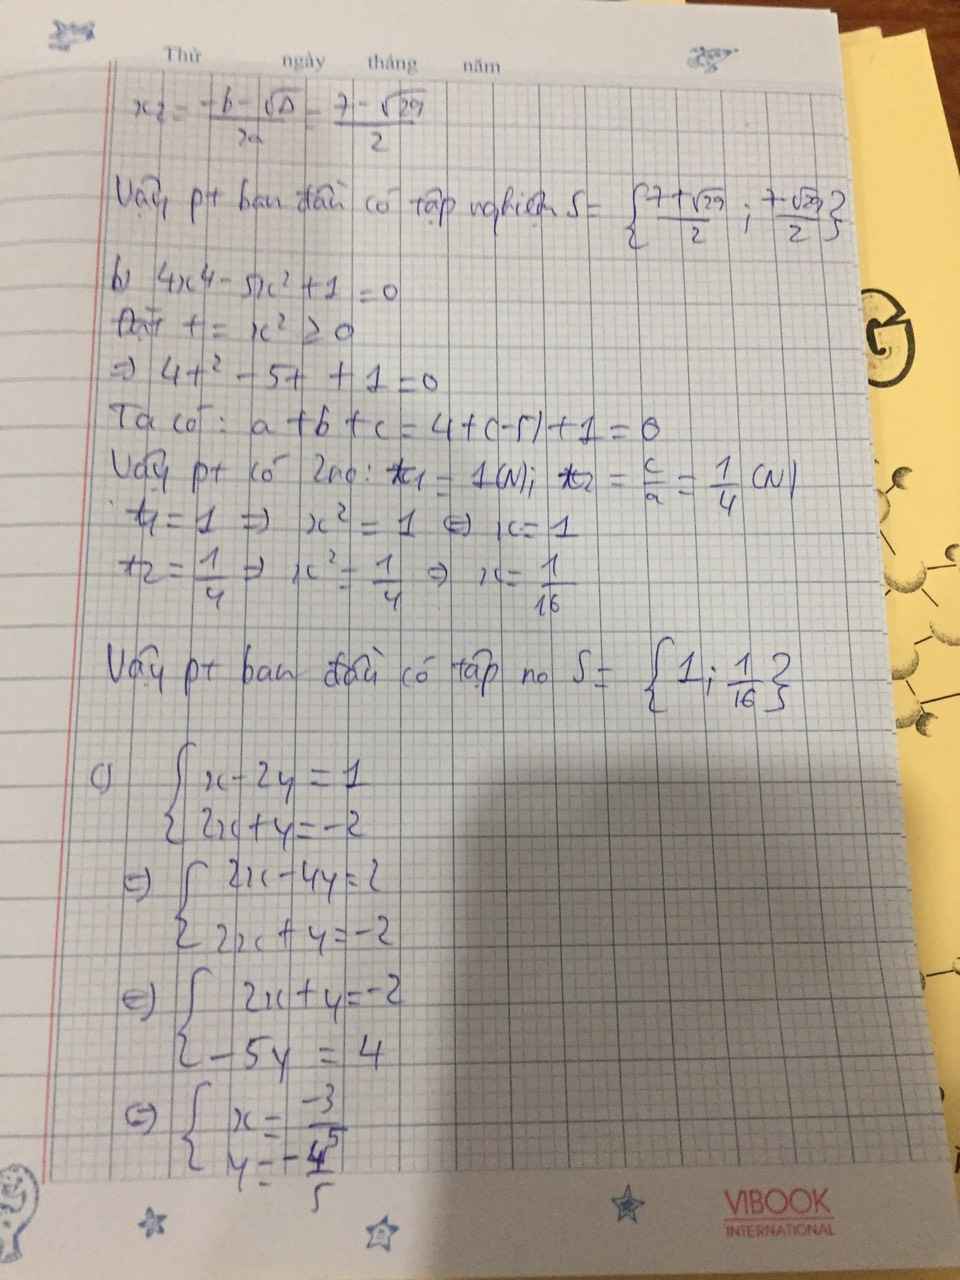 Thứ ngày tháng năm
x₂ = (-b - √Δ)/2a = (7 - √29)/2
Vậy pt ban đầu có tập nghiệm S = {(7 + √29)/2 ; (7 - √29)/2}
b) 4x⁴ - 5x² + 1 = 0
Đặt t = x² ≥ 0
⇒ 4t² - 5t + 1 = 0
Ta có: a + b + c = 4 + (-5) + 1 = 0
Vậy pt có 2no: t₁ = 1 (N); t₂ = c/a = 1/4 (N)
t₁ = 1 ⇒ x² = 1 ⇔ x = 1
t₂ = 1/4 ⇒ x² = 1/4 ⇒ x = 1/16
Vậy pt ban đầu có tập no S = {1; 1/16}
c) { x - 2y = 1
2x + y = -2
⇔ { 2x - 4y = 2
2x + y = -2
⇔ { 2x + y = -2
-5y = 4
⇔ { x = -3/5
y = -4/5
VIBOOK
INTERNATIONAL